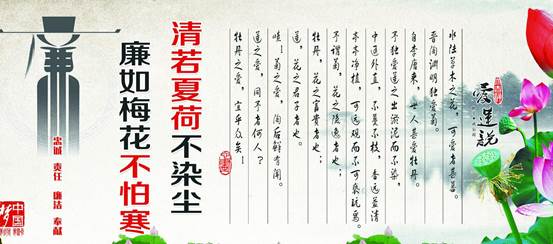 愛蓮說
水陆草木之花，可爱者甚蕃。
晋陶渊明独爱菊。
自李唐来，世人甚爱牡丹。
予独爱莲之出淤泥而不染，
中通外直，不蔓不枝，香远益清
亭亭净植，可远观而不可亵玩焉。
予谓菊，花之隐逸者也；
牡丹，花之富贵者也；
莲，花之君子者也。
噫！菊之爱，陶后鲜有闻。
莲之爱，同予者何人？
牡丹之爱，宜乎众矣！
清若夏荷不染尘
廉如梅花不怕寒
廉
忠诚 责任 廉洁 奉献
中国梦